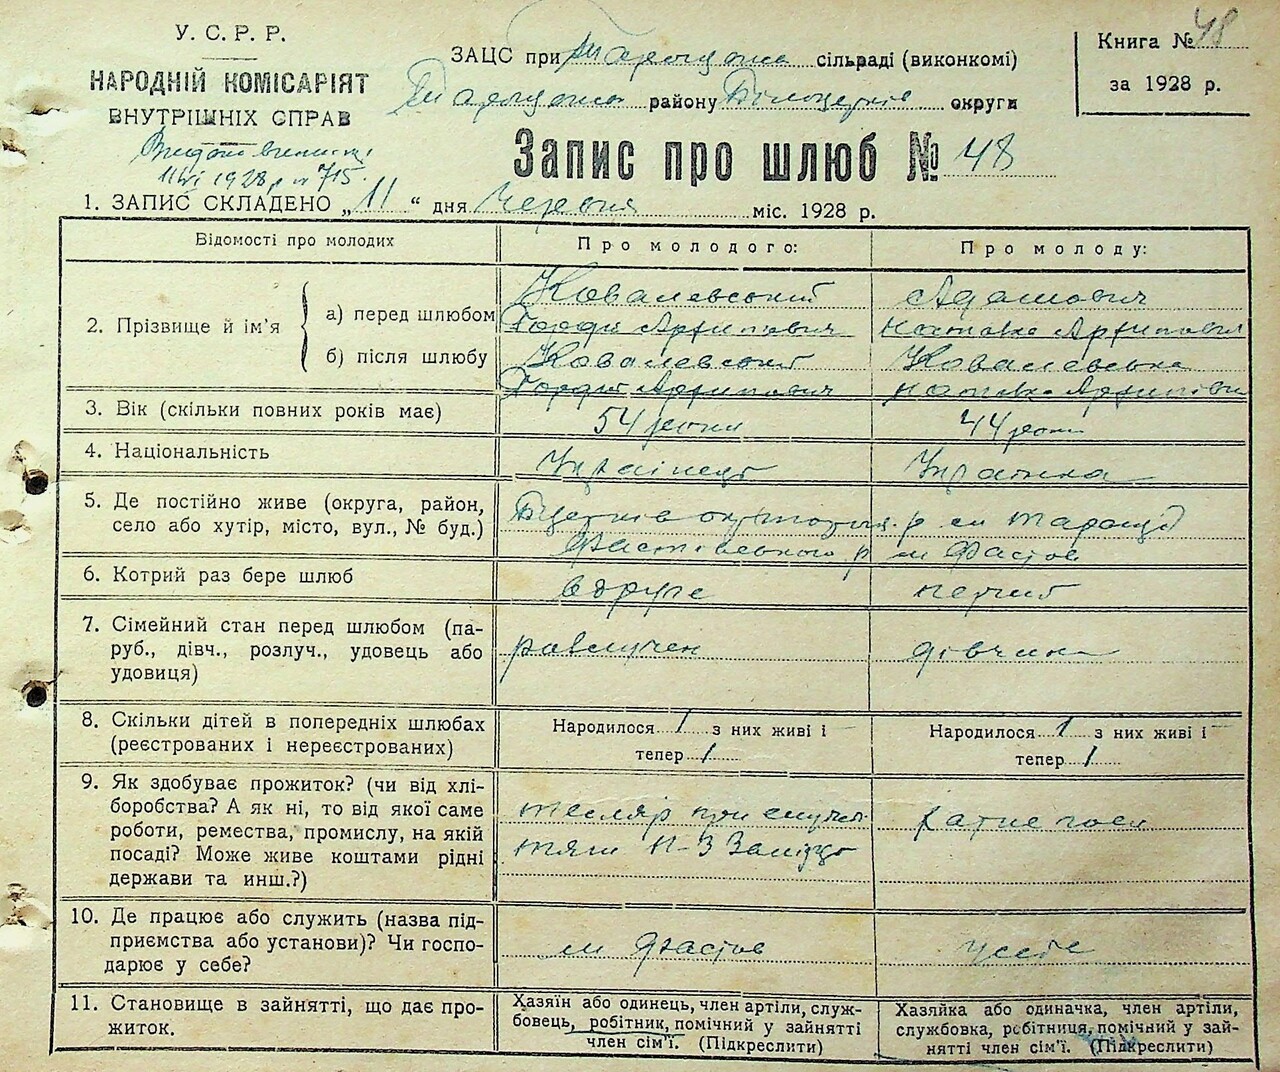 У. С. Р. Р.
НАРОДНІЙ КОМІСАРІЯТ
ВНУТРІШНІХ СПРАВ
11/VI 1928 р № 715.
ЗАЦС при сільраді (виконкомі)
району округи
Книга № 48
за 1928 р.
Запис про шлюб № 48
1. ЗАПИС СКЛАДЕНО „ 11 “ дня Червня міс. 1928 р.
Відомості про молодих
Про молодого:
Про молоду:
2. Прізвище й ім'я
а) перед шлюбом
Ковалевський
Гордій Архипович
Адамович
Архиповна
б) після шлюбу
Ковалевський
Гордій Архипович
Ковалевська
3. Вік (скільки повних років має)
54 роки
44 роки
4. Національність
Українець
Українка
5. Де постійно живе (округа, район,
село або хутір, місто, вул., № буд.)
р м Таращі
Фастівського р м Фастов
6. Котрий раз бере шлюб
вдруге
перший
7. Сімейний стан перед шлюбом (па-
руб., дівч., розлуч., удовець або
удовиця)
розлучен
дівчина
8. Скільки дітей в попередніх шлюбах
(реєстрованих і нереєстрованих)
Народилося 1 з них живі і
тепер 1
Народилося 1 з них живі і
тепер 1
9. Як здобуває прожиток? (чи від хлі-
боробства? А як ні, то від якої саме
роботи, ремества, промислу, на якій
посаді? Може живе коштами рідні
держави та инш.?)
тесляр при службі
П-З Залізці
хатнє госп
10. Де працює або служить (назва під-
приємства або установи)? Чи госпо-
дарює у себе?
м Фастов
у себе
11. Становище в зайнятті, що дає про-
житок.
Хазяїн або одинець, член артіли, служ-
бовець, робітник, помічний у зайнятті
член сім'ї. (Підкреслити)
Хазяйка або одиначка, член артіли,
службовка, робітниця, помічний у зай-
нятті член сім'ї. (Підкреслити)